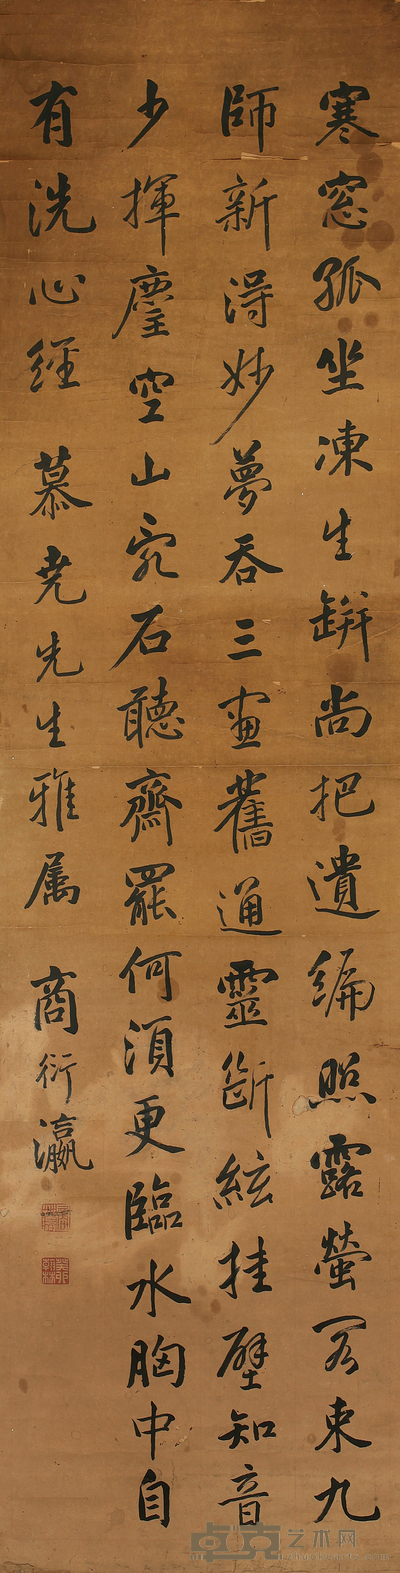 寒窓孤坐凍生缾尚把遺編照露螢閣束九
師新得妙夢吞三畫舊通靈斷絃挂壁知音
少揮麈空山亂石聽齋罷何須更臨水胸中自
有洗心經 慕堯先生雅属 商衍瀛
卓克艺术网